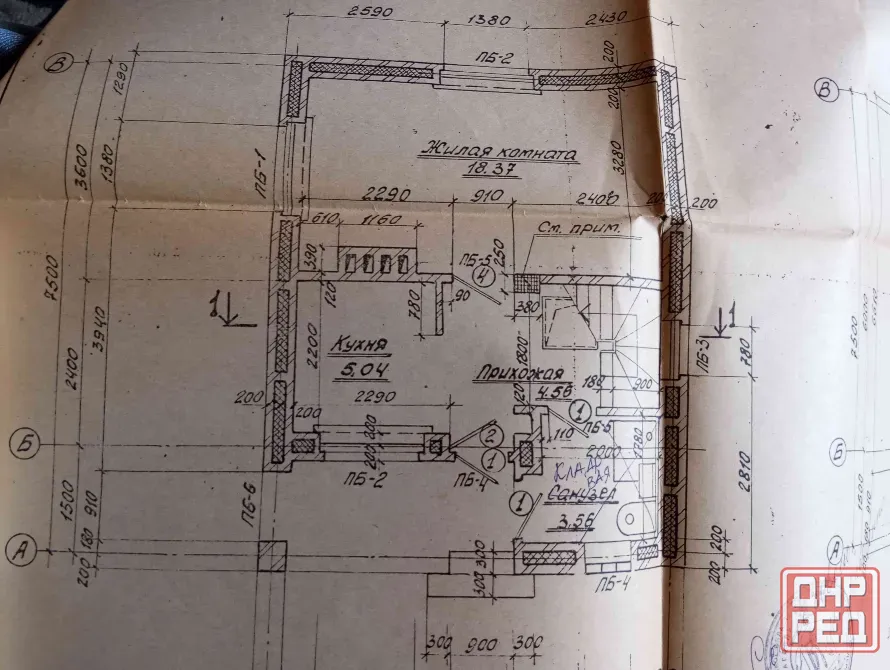 2590
1380
2430
ПБ-2
В
В
1290
200
200
3600
1380
ПБ-1
Жилая комната
18.37
3280
2290
910
2400
200
200
610
1160
См. прим.
390
ПБ-5
4
250
7500
120
780
90
380
1
1
3940
2200
Кухня
5,04
1800
ПБ-3
780
7500
6000
2400
Прихожая
4.56
180
900
200
200
2290
120
1
ПБ-5
1780
Б
200
2
110
2000
Б
200
1
ПБ-2
ПБ-4
КЛАД
ВАЯ
2810
ПБ-6
Санузел
3.56
1500
910
1
1500
910
А
180
200
А
200
300
300
ПБ-4
200
180
300
900
300
ДНР
РЕД